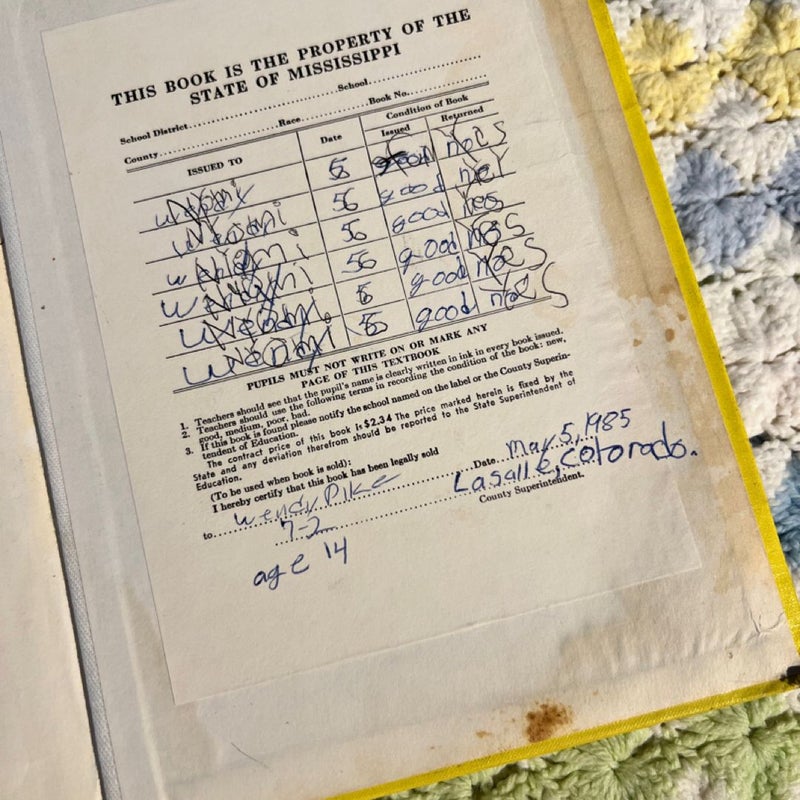 THIS BOOK IS THE PROPERTY OF THE
STATE OF MISSISSIPPI
School
School District
County Race Book No.
ISSUED TO Date Condition of Book
Issued Returned
good
56 good
56 good
56 good
good
good
PUPILS MUST NOT WRITE ON OR MARK ANY
PAGE OF THIS TEXTBOOK
1. Teachers should see that the pupil's name is clearly written in ink in every book issued.
2. Teachers should use the following terms in recording the condition of the book: new,
good, medium, poor, bad.
3. If this book is found please notify the school named on the label or the County Superin-
tendent of Education.
The contract price of this book is $2.34 The price marked herein is fixed by the
State and any deviation therefrom should be reported to the State Superintendent of
Education.
(To be used when book is sold):
I hereby certify that this book has been legally sold
Date May 5, 1985
to Wendy Pike Lasalle, Colorado.
County Superintendent.
7-2
age 14